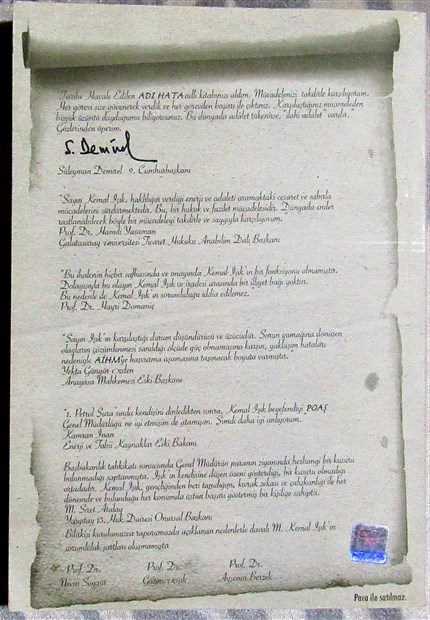 Havale Edilen ADI HATA adlı kitabınızı aldım. Mücadelenizi takdirle karşılıyorum.
Her görevi size güvenerek verdik ve her görevden başarı ile çıktınız. Karşılaştığınız muameleden
büyük üzüntü duyduğumu biliyorsunuz. Bu dünyada adalet tükenirse, "ilahi adalet" vardır."
Gözlerinden öperim.
S. Demirel
Süleyman Demirel 9. Cumhurbaşkanı
"Sayın Kemal Işık, haklılığın verdiği enerji ve adaleti aramaktaki cesaret ve sabırla
mücadelesini sürdürmektedir. Bu, bir hukuk ve fazilet mücadelesidir. Dünyada ender
rastlanabilecek böyle bir mücadeleyi takdirle ve saygıyla karşılıyorum.
Prof. Dr. Hamdi Yasaman
Galatasaray üniversitesi Ticaret Hukuku Anabilim Dalı Başkanı
"Bu ihalenin hiçbir safhasında ve onayında Kemal Işık'ın bir fonksiyonu olmamıştır.
Dolayısıyla bu olayın Kemal Işık ve işgali arasında bir illiyet bağı yoktur.
Bu nedenle de Kemal Işık'ın sorumluluğu iddia edilemez."
Prof. Dr. Hayri Domaniç
"Sayın Işık'ın karşılaştığı durum düşündürücü ve üzücüdür. Sorun yumağına dönüşen
olayların çözümlenmesi sanıldığı ölçüde güç olmamasına karşın, yaklaşım hataları
nedeniyle AİHM'ye başvurma aşamasına taşınacak boyuta varmıştır.
Yekta Güngör Özden
Anayasa Mahkemesi Eski Başkanı
"1. Petrol Şura'sında kendisini dinledikten sonra, Kemal Işık beyefendiyi POAŞ
Genel Müdürlüğü'ne iyi etmişim de atamışım. Şimdi daha iyi anlıyorum.
Kamran İnan
Enerji ve Tabii Kaynaklar Eski Bakanı
Başbakanlık tahkikatı sonucunda Genel Müdürün paranın ziyanında herhangi bir kusuru
bulunmadığı saptanmıştır. Işık'ın kendisine düşen özeni gösterdiği, bir kusuru olmadığı
ortadadır. Kemal Işık, gençliğinden beri tanıdığım, hukuk zekası ve çalışkanlığı ile her
dönemde ve bulunduğu her konumda üstün başarı göstermiş bir kişiliğe sahiptir.
M. Sırrı Atalay
Yargıtay 13. Huk. Dairesi Onursal Başkanı
Bilirkişi kurulumuzca raporumuzda açıklanan nedenlerle davalı M. Kemal Işık'ın
sorumluluk şartları oluşmamıştır.
Prof. Dr. Prof. Dr. Prof. Dr.
Para ile satılmaz.